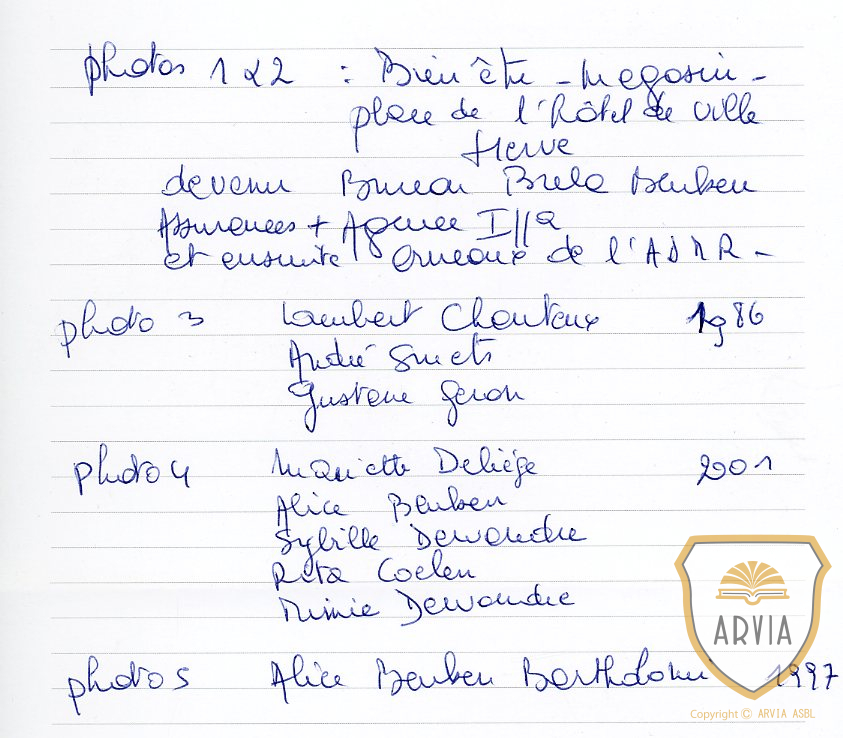 photos 1 & 2 : Bien être - Magasin -
place de l'Hôtel de Ville
Herve
devenu Bureau Beuken
Assurances + Agence
et ensuite de l'ADMR -
photo 3 Lambert Chanteux 1986
André Smets
Gustave Geron
photo 4 Mariette Deliège 2001
Alice Beuken
Sybille Dewandre
Rita Coelen
Mimie Dewandre
photo 5 Alice Beuken 1997
ARVIA
Copyright © ARVIA ASBL